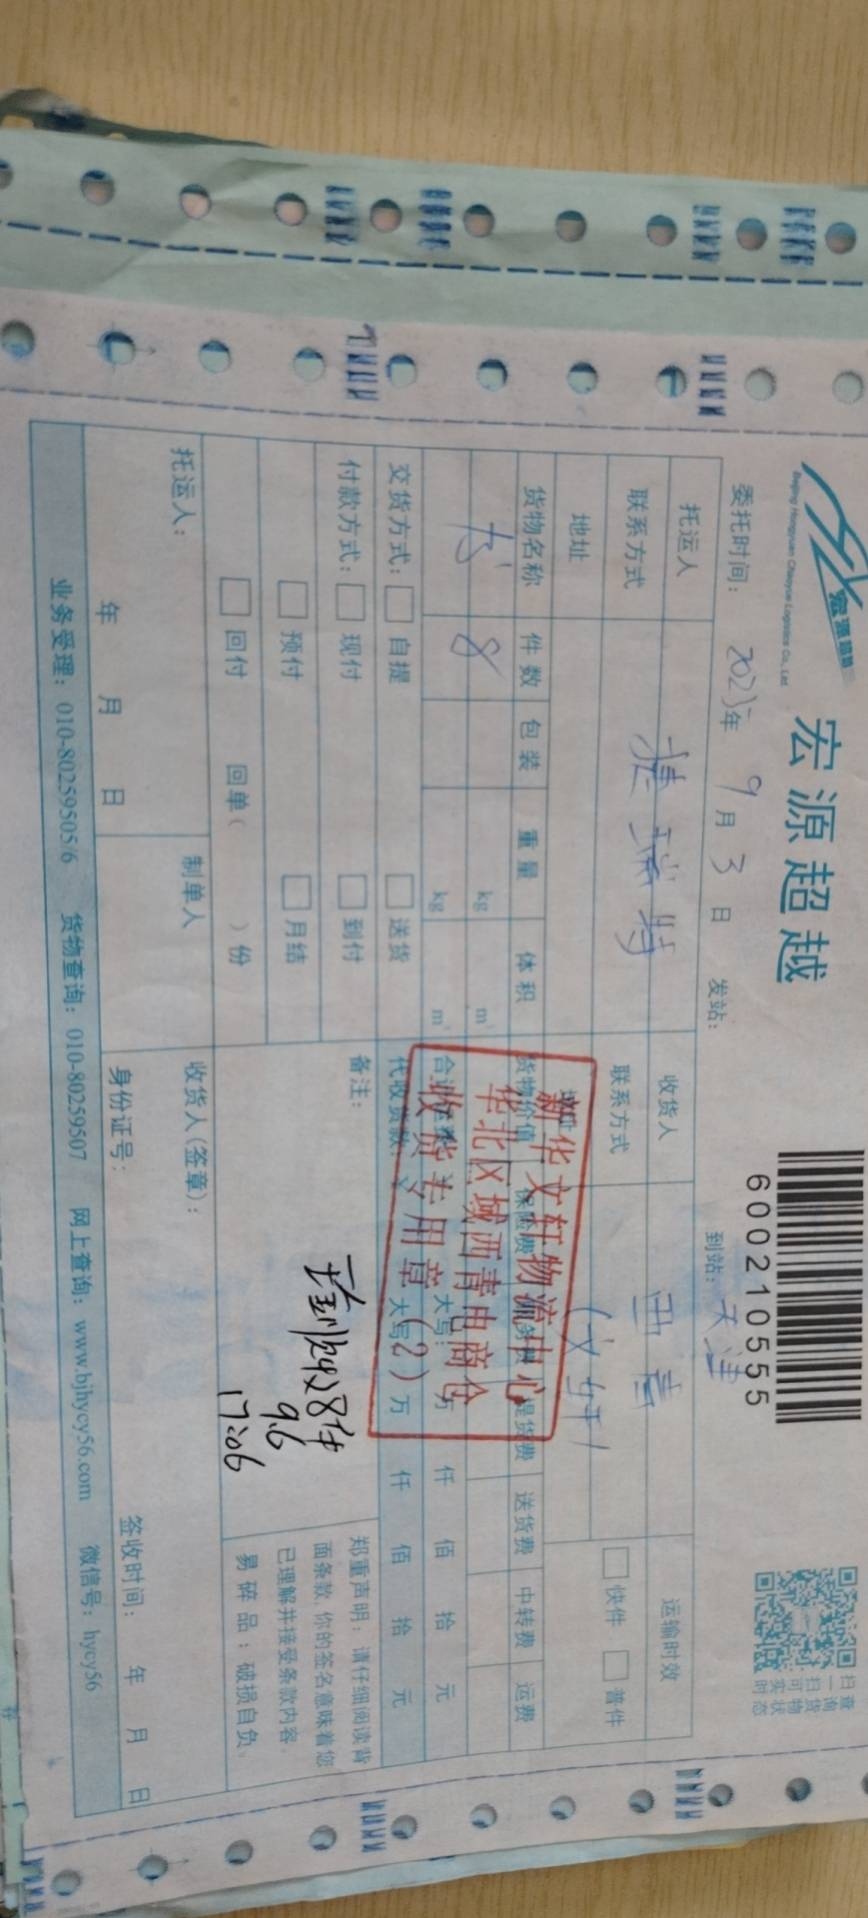 宏源超越
Beijing Hongyuan Chaoyue Logistics Co., Ltd
宏源超越
600210555
扫一扫可实时
查询货物状态
委托时间： 2023年 9月 3日 发站： 到站：天津
托运人 捷瑞特 收货人 西青 运输时效
联系方式 联系方式 快件 普件
地址 地址 (文轩)
货物名称 件数 包装 重量 体积 货物价值 保险费 提货费 送货费 中转费 运费
书 8 kg m³
kg m³ 大写： 万 仟 佰 拾 元
交货方式： 自提 送货 代收货款： 大写 万 仟 佰 拾 元
付款方式： 现付 到付 备注：
预付 月结
回付 回单（ ）份
新华文轩物流中心
华北区域西青电商仓
收货专用章（2）
8件
9.6
17:06
郑重声明：请仔细阅读背
面条款，你的签名意味着您
已理解并接受条款内容。
易碎品：破损自负。
托运人： 制单人 收货人(签章)：
年 月 日 身份证号： 签收时间： 年 月 日
业务受理：010-80259505/6 货物查询：010-80259507 网上查询：www.bjhycy56.com 微信号：hycy56